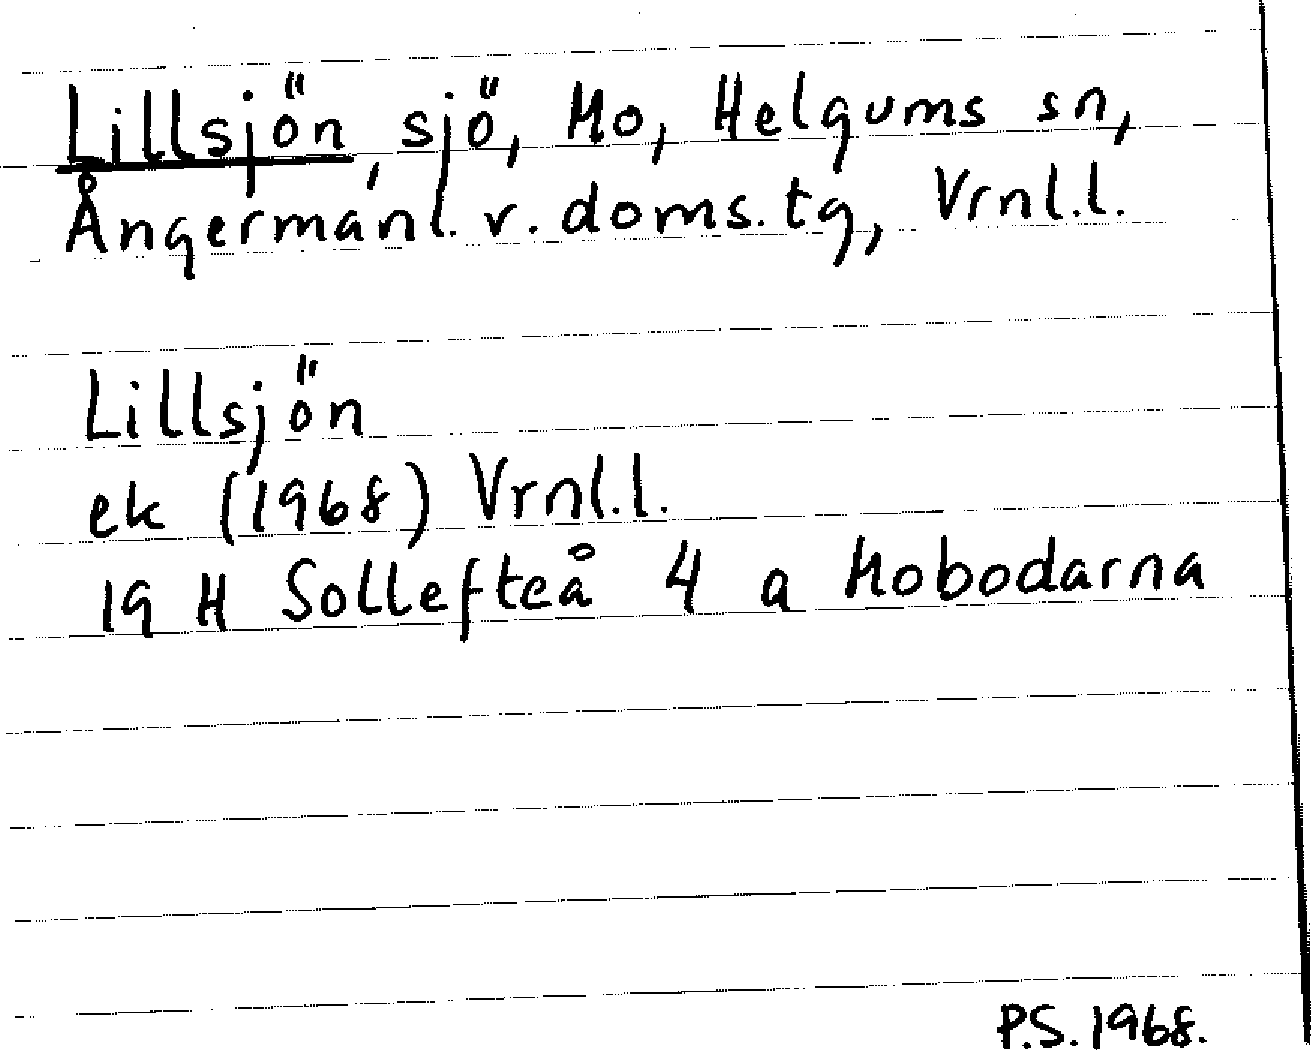 Lillsjön, sjö, Mo, Helgums sn,
Ångermanl. v. doms. tg, Vrnl.l.
Lillsjön
ek (1968) Vrnl.l.
19 H Sollefteå 4 a Mobodarna
P.S. 1968.